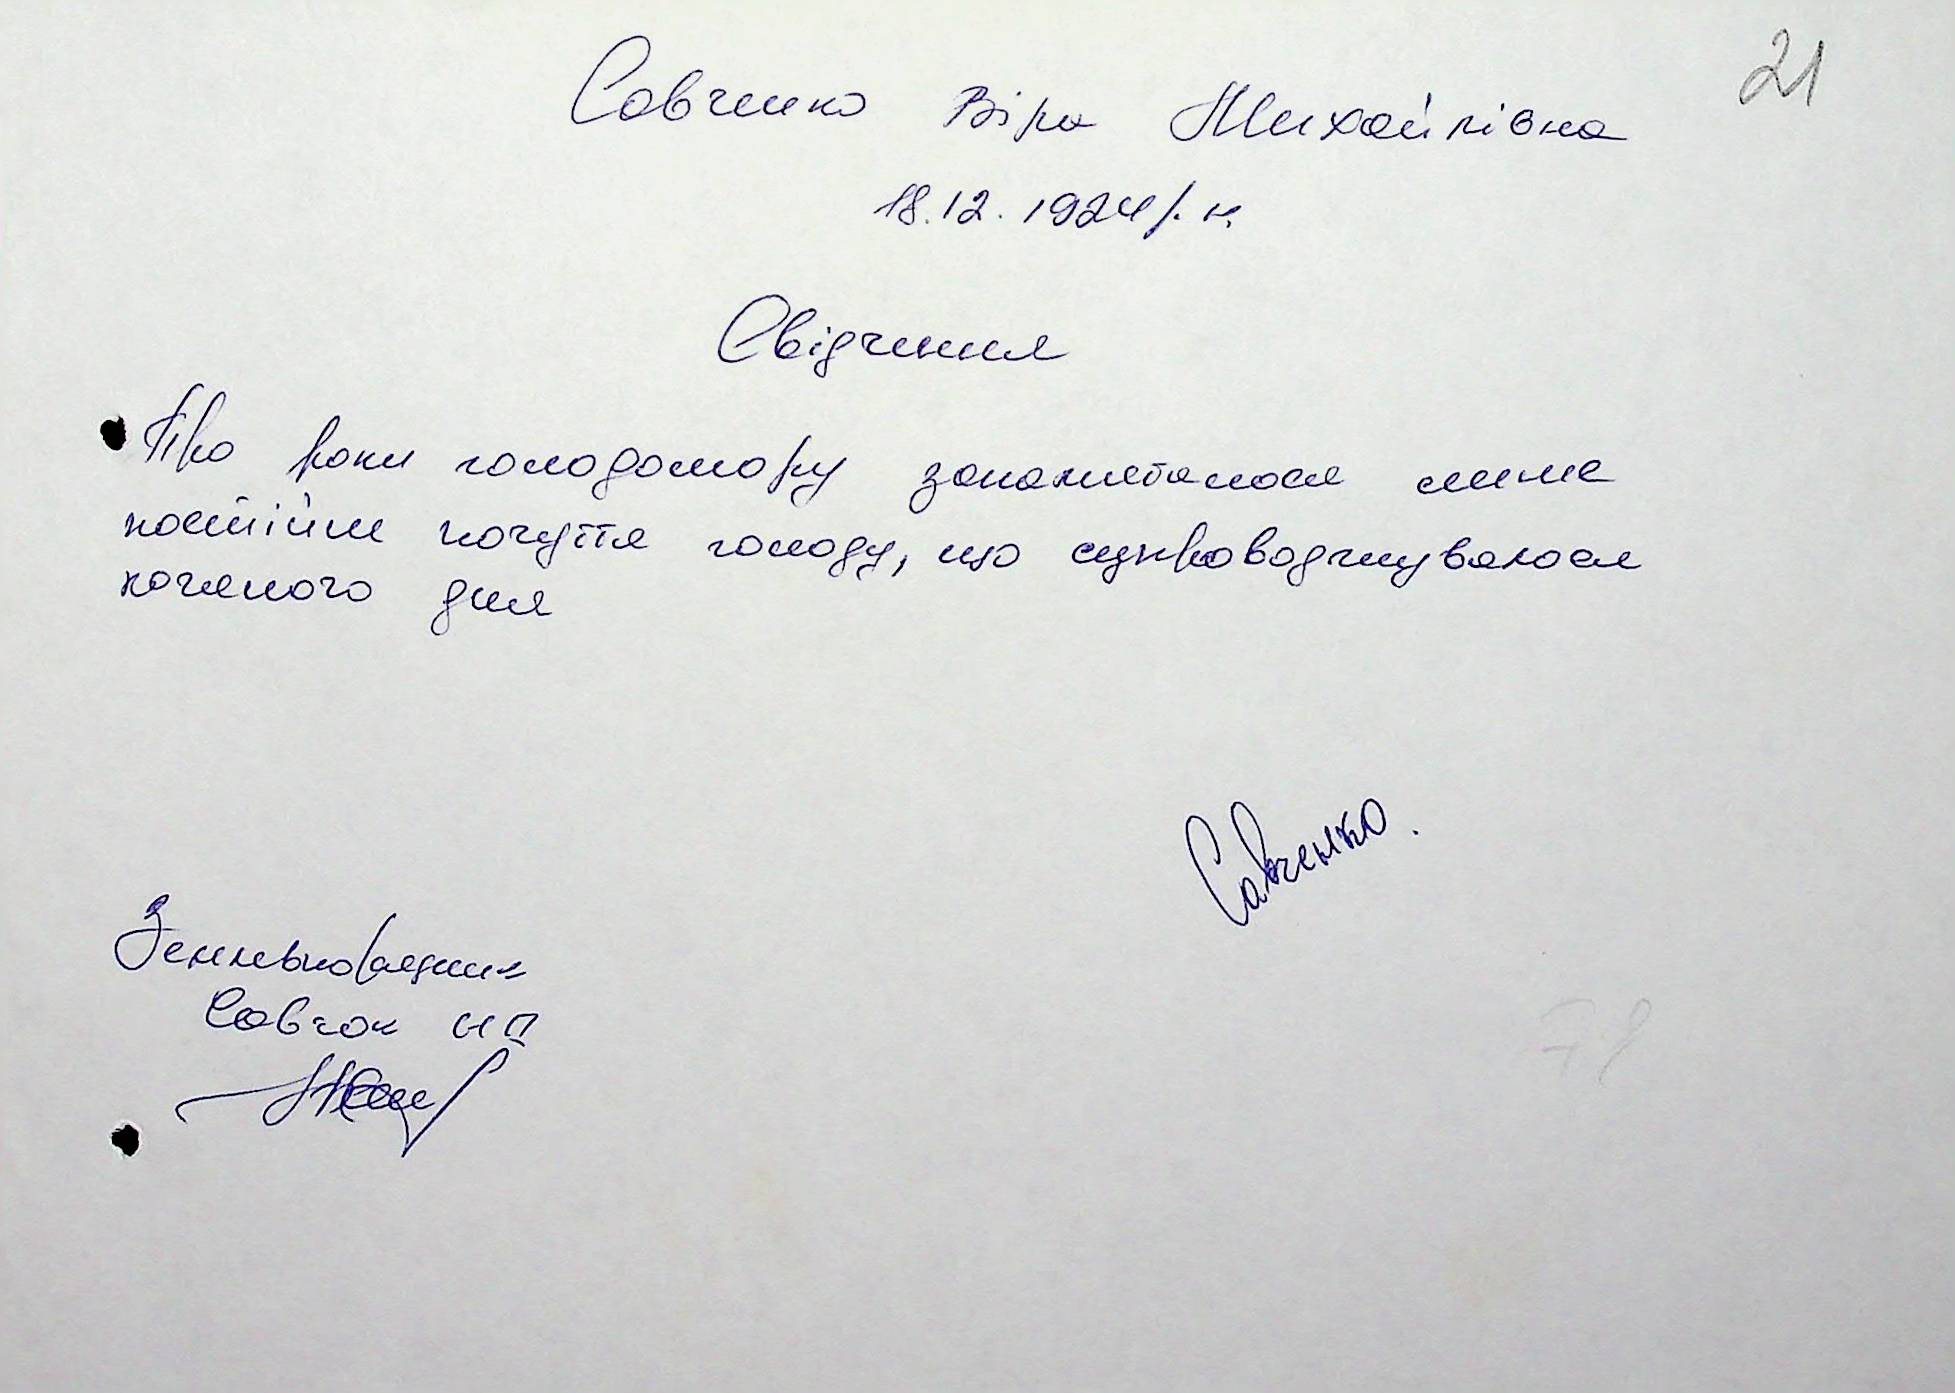 21
Савченко Віра Михайлівна
18.12.1924 р.н.
Свідчення
Про роки голодомору запам'яталося лише
постійне почуття голоду, що супроводжувалося
кожного дня
Савченко.
Землевпорядник
Савчок Н П
78